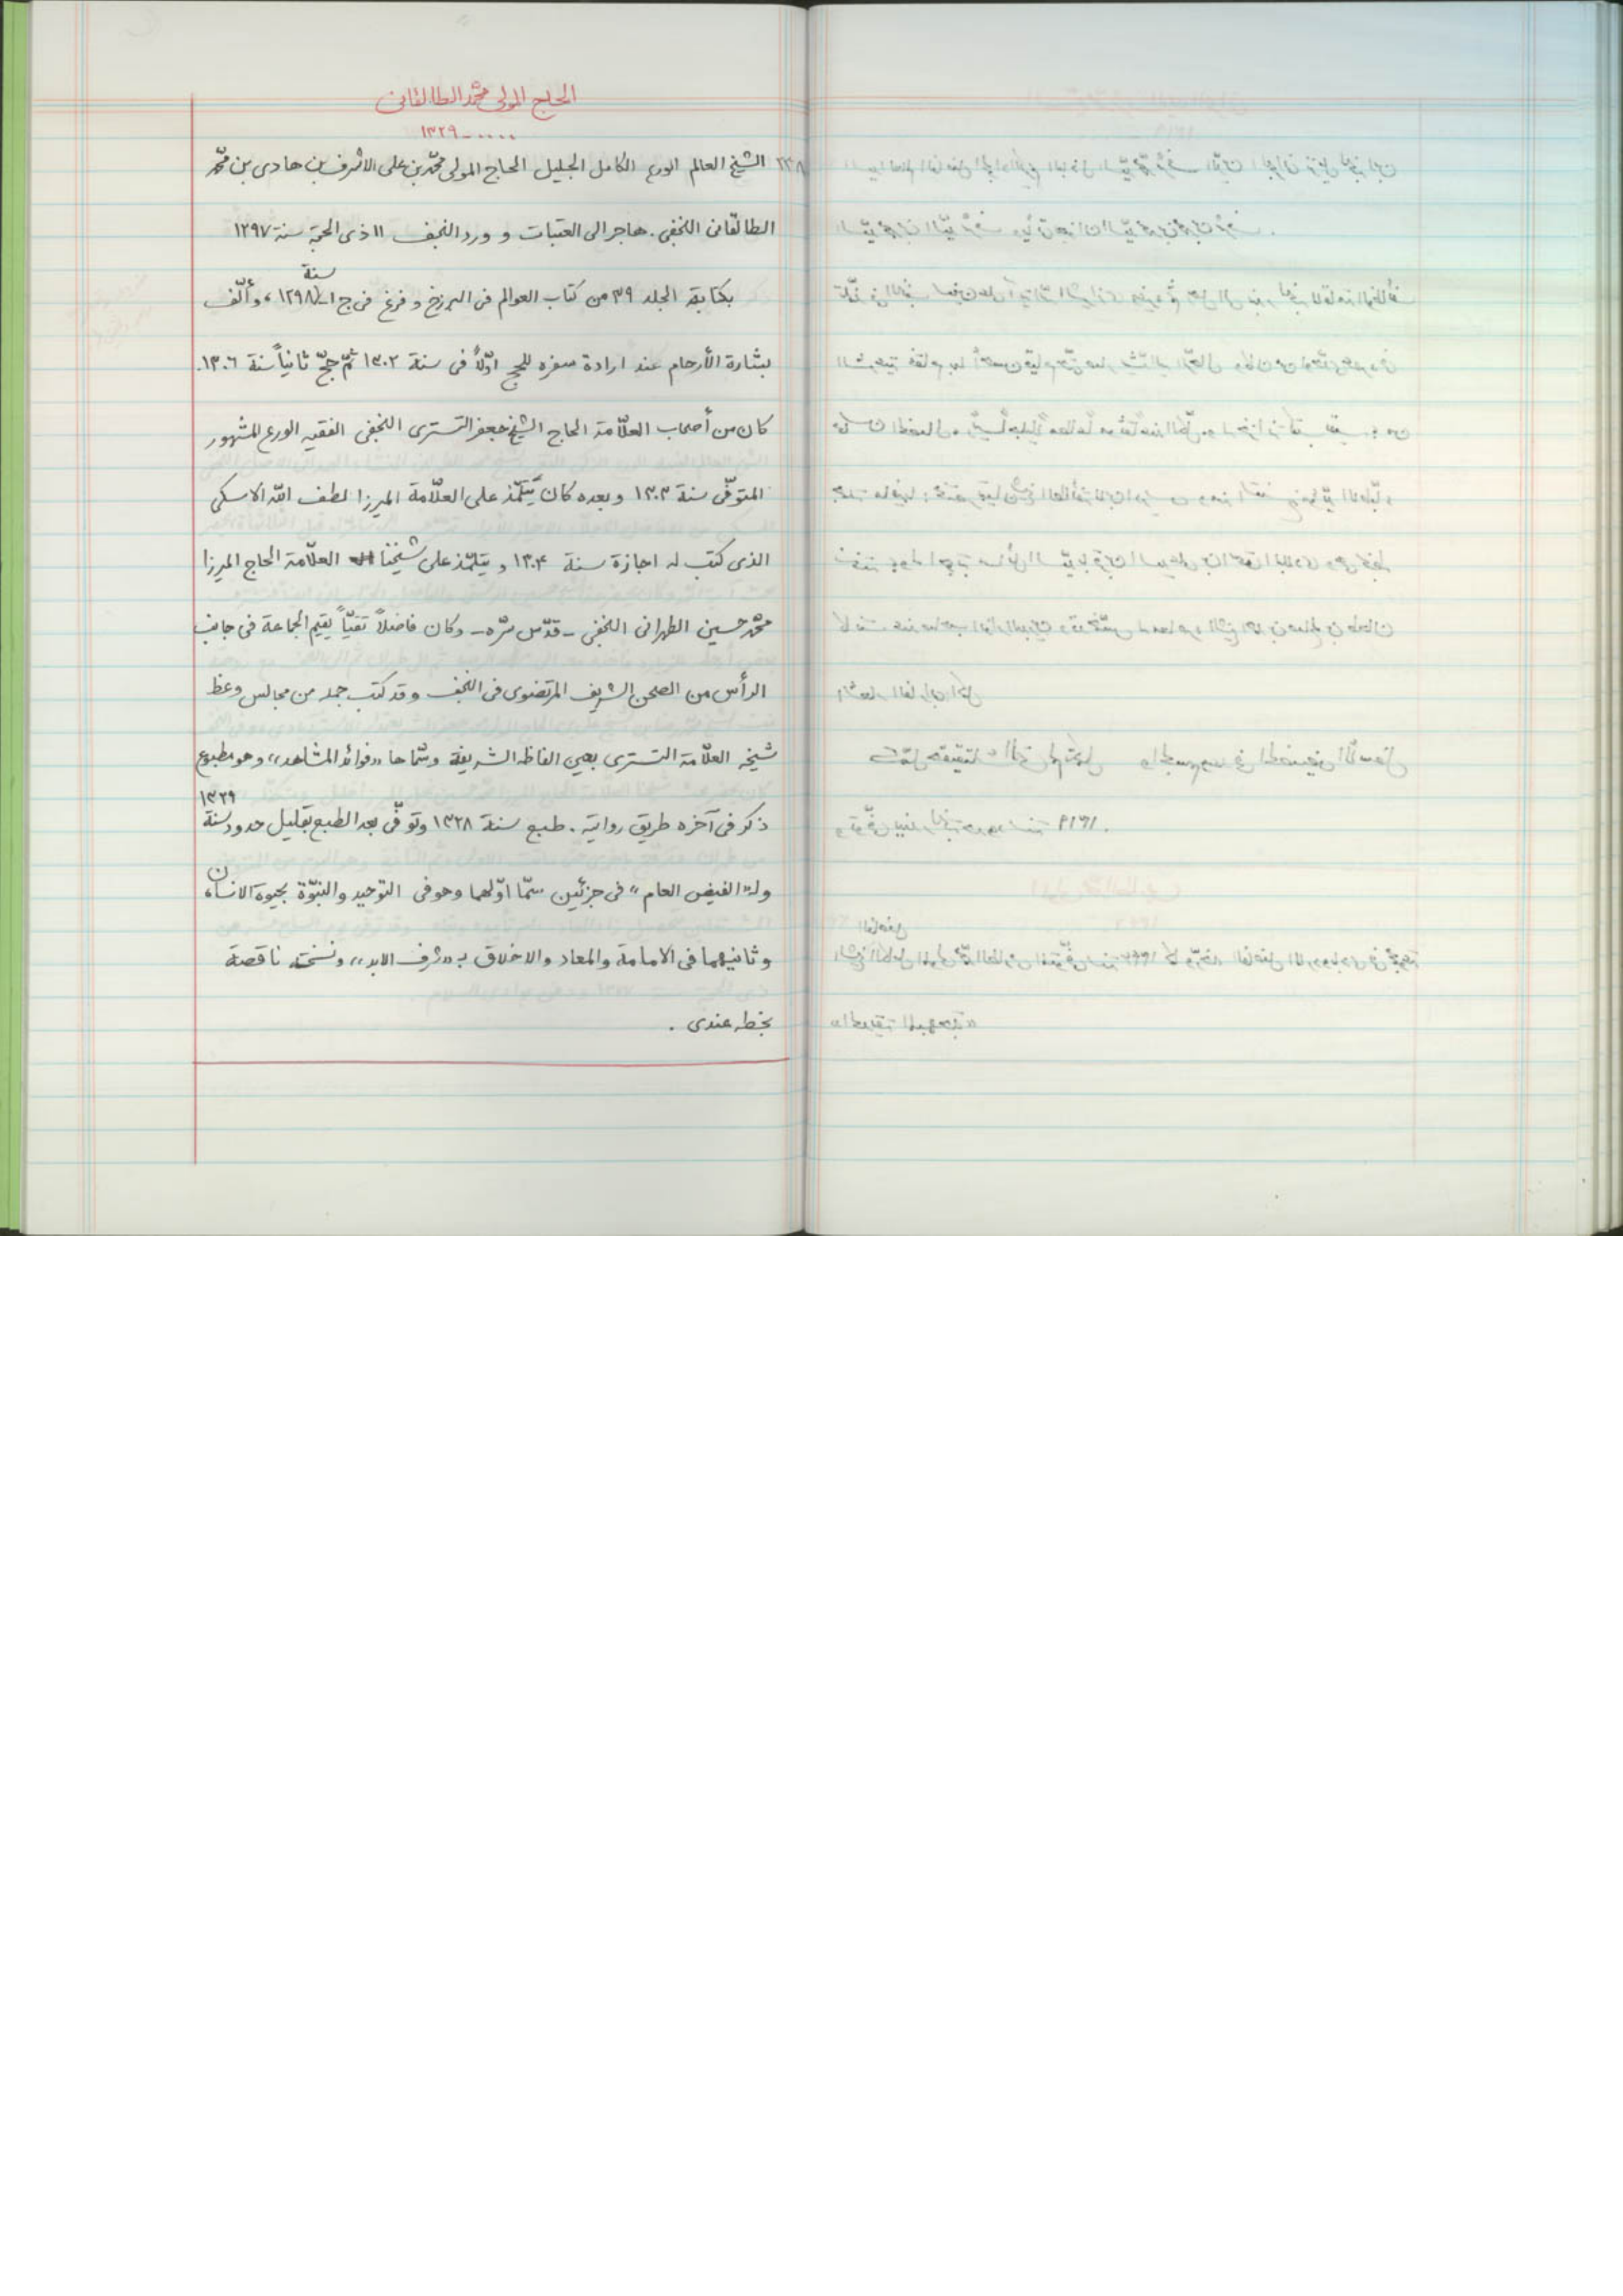 الحاج المولى محمّد الطالقانى
.... - ١٣٢٩
٢٣٨ الشيخ العالم الورع الكامل الجليل الحاج المولى محمّد بن على الاشرف بن هادى بن محمّد
الطالقانى النجفى. هاجر الى العتبات و ورد النجف ١١ ذى الحجة سنة ١٢٩٧
بكتابة الجلد ٣٩ من كتاب العوالم فى البرزخ و فرغ فى ج ١ سنة ١٢٩٨، و ألّف
بشارة الأرحام عند ارادة سفره للحج اوّلاً فى سنة ١٣٠٢ ثمّ حجّ ثانياً سنة ١٣٠٦.
كان من أصحاب العلّامة الحاج الشيخ جعفر التسترى النجفى الفقيه الورع المشهور
المتوفّى سنة ١٣٠٣ و بعده كان يتلمّذ على العلّامة الميرزا لطف الله الاسكى
الذى كتب له اجازة سنة ١٣٠٤ و يتلمّذ على شيخنا العلّامة الحاج الميرزا
محمّد حسين الطهرانى النجفى - قدّس سّره - وكان فاضلاً تقيّاً يقيم الجماعة فى جانب
الرأس من الصحن الشريف المرتضوى فى النجف و قد كتب جملة من مجالس وعظ
شيخه العلّامة التسترى بعين الفاظه الشريفة و سّماها «فوائد المشاهد» و هو مطبوع
ذكر فى آخره طريق روايته. طبع سنة ١٣٢٨ و توفّى بعد الطبع بقليل حدود سنة ١٣٢٩
وله «الفيض العام» فى جزئين سمّا اوّلهما و هو فى التوحيد والنبوّة بحيوة الانسان،
و ثانيهما فى الامامة والمعاد والاخلاق بـ «شرف الابد» و نسخته ناقصة
بخطه عندى.